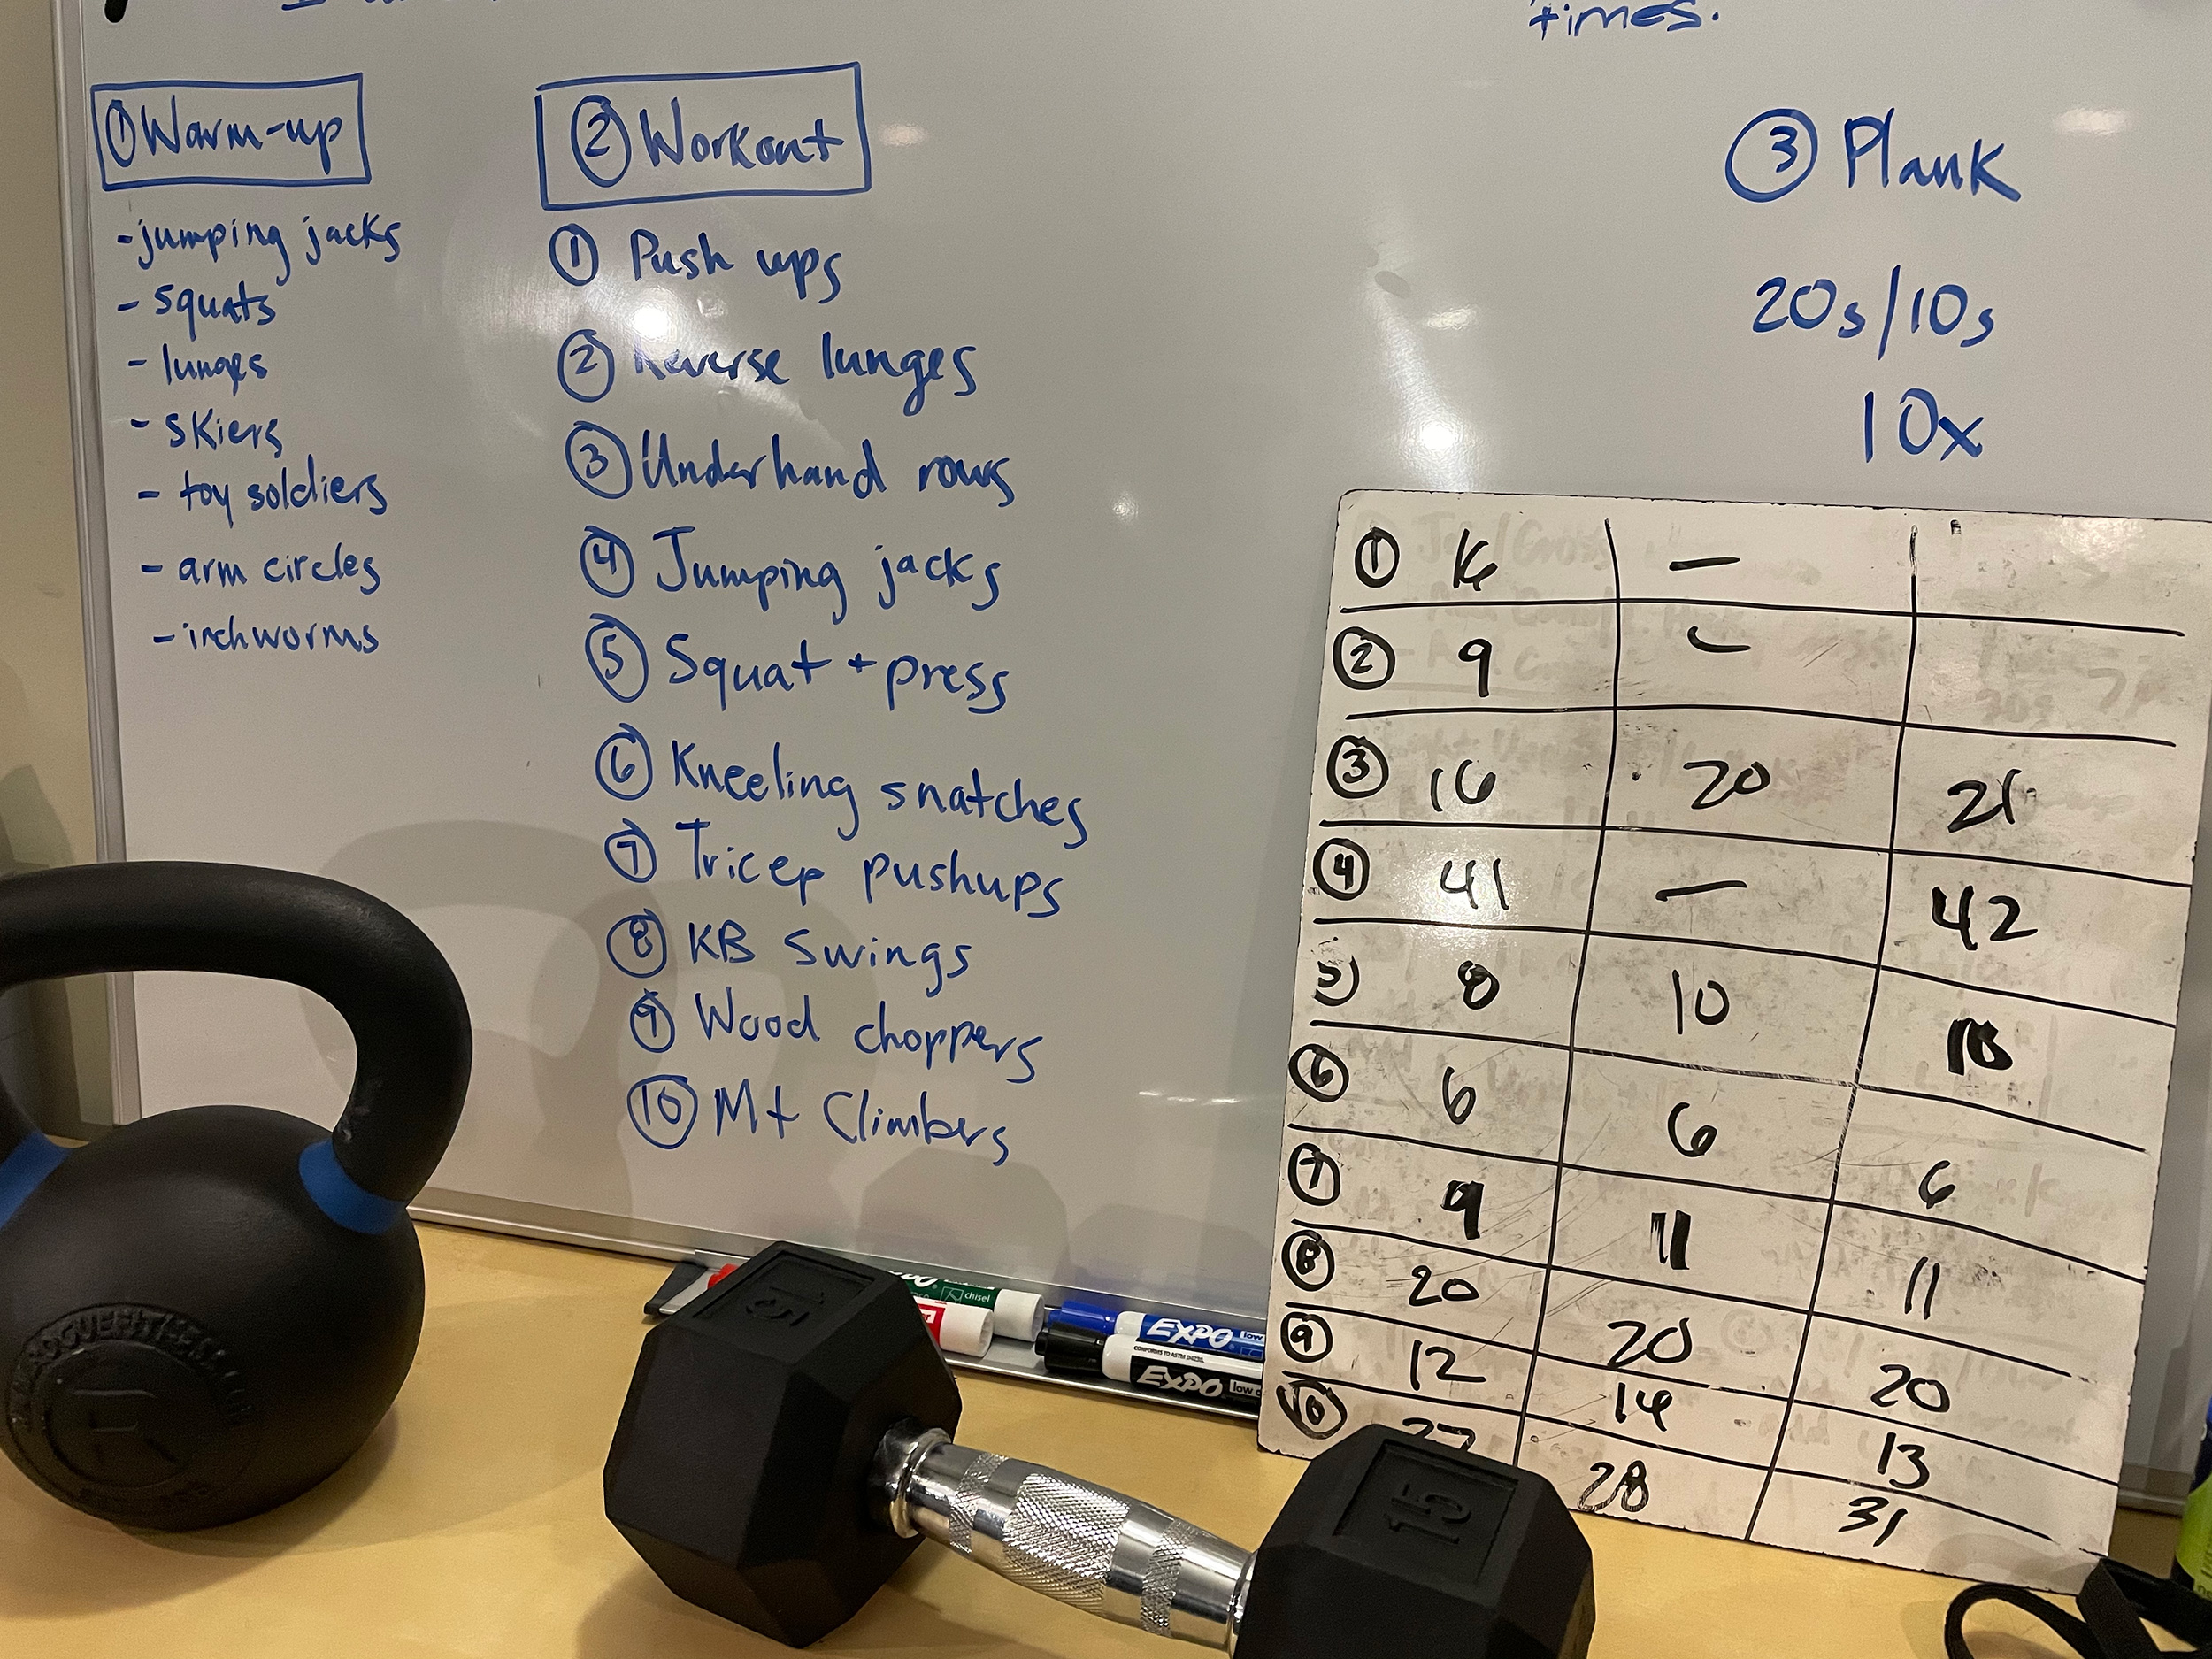 times.
① Warm-up
- jumping jacks
- squats
- lunges
- skiers
- toy soldiers
- arm circles
- inchworms
② Workout
① Push ups
② Reverse lunges
③ Underhand rows
④ Jumping jacks
⑤ Squat + press
⑥ Kneeling snatches
⑦ Tricep pushups
⑧ KB swings
⑨ Wood choppers
⑩ Mt Climbers
③ Plank
20s/10s
10x
① 16 —
② 9 —
③ 16 20 21
④ 41 — 42
⑤ 8 10 10
⑥ 6 6 6
⑦ 9 11 11
⑧ 20 20 20
⑨ 12 14 13
⑩ 27 28 31
15
15
chisel
EXPO low
EXPO low